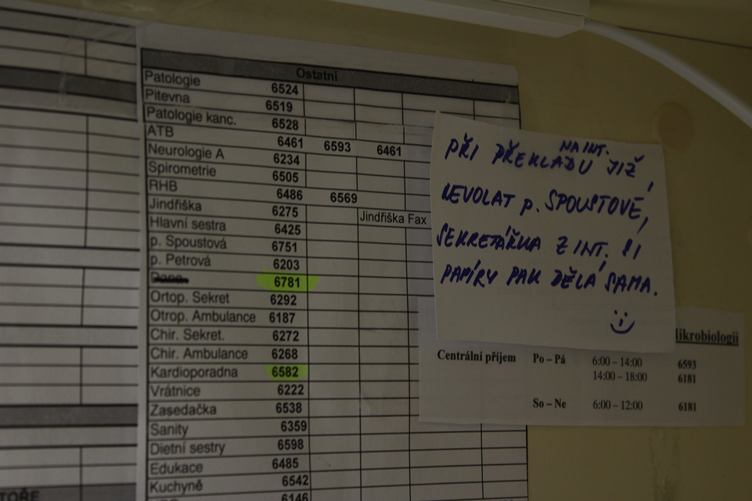 Ostatní
Patologie 6524
Pitevna 6519
Patologie kanc. 6528
ATB 6461 6593 6461
Neurologie A 6234
Spirometrie 6505
RHB 6486 6569
Jindřiška 6275 Jindřiška Fax
Hlavní sestra 6425
p. Spoustová 6751
p. Petrová 6203
6781
Ortop. Sekret 6292
Otrop. Ambulance 6187
Chir. Sekret. 6272
Chir. Ambulance 6268
Kardioporadna 6582
Vrátnice 6222
Zasedačka 6538
Sanity 6359
Dietní sestry 6598
Edukace 6485
Kuchyně 6542
6146
NA INT.
PŘI PŘEKLADU JIŽ
NEVOLAT p. SPOUSTOVÉ,
SEKRETÁŘKA Z INT. SI
PAPÍRY PAK DĚLÁ SAMA.
ikrobiologii
Centrální příjem Po – Pá 6:00 – 14:00 6593
14:00 – 18:00 6181
So – Ne 6:00 – 12:00 6181